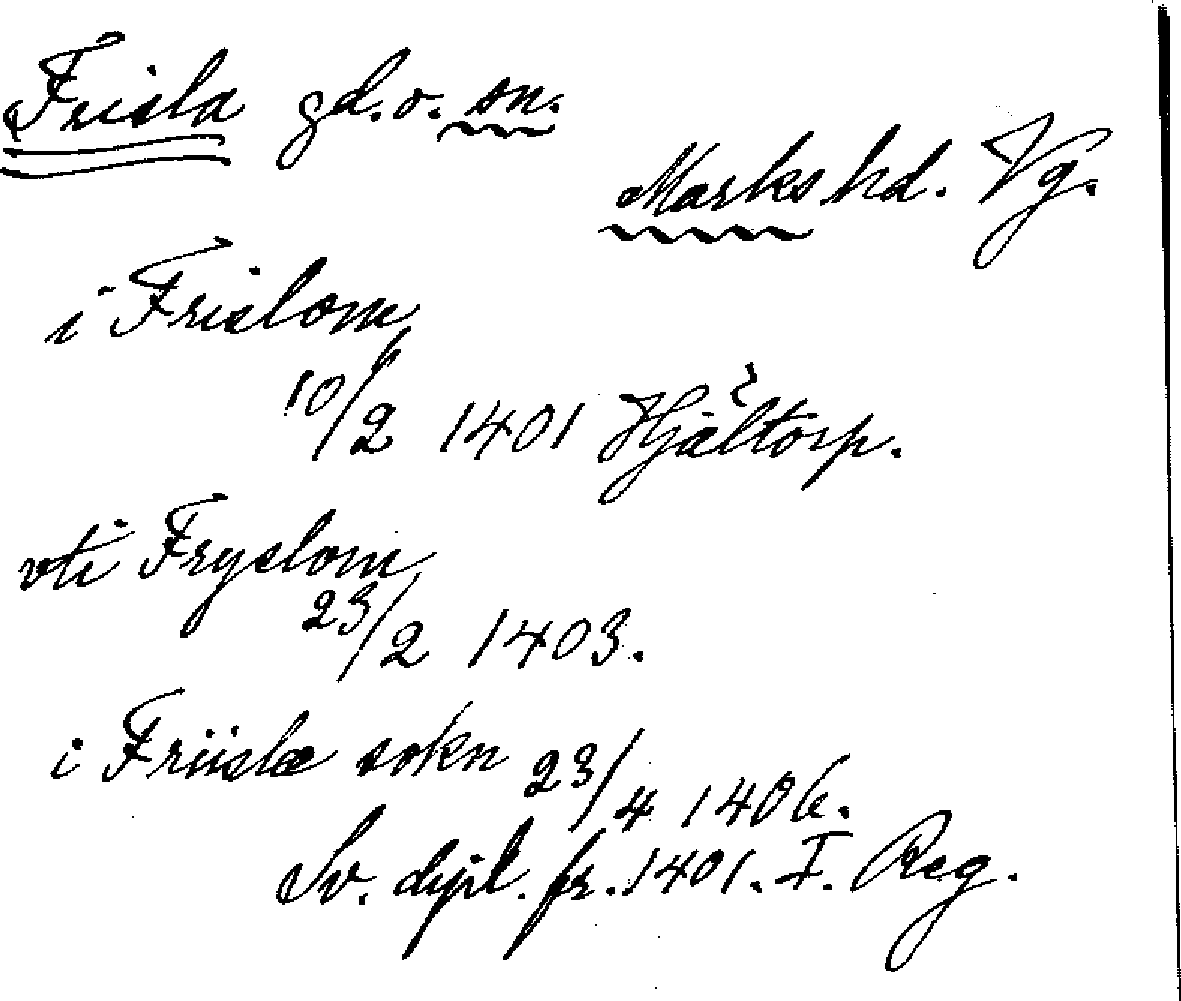 Frisla gd. o. sn.
Marks hd. Vg.
i Frislom
10/2 1401 Hjältorp.
vti Fryslom
23/2 1403.
i Friislæ sokn 23/4 1406.
Sv. dipl. fr. 1401. I. Reg.